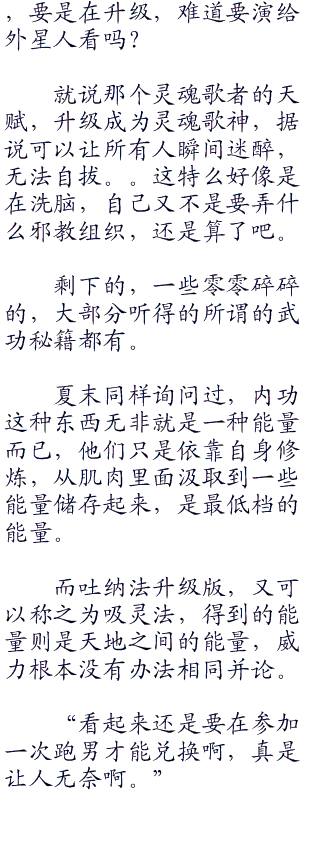 ，要是在升级，难道要演给
外星人看吗？
就说那个灵魂歌者的天
赋，升级成为灵魂歌神，据
说可以让所有人瞬间迷醉，
无法自拔。。这特么好像是
在洗脑，自己又不是要弄什
么邪教组织，还是算了吧。
剩下的，一些零零碎碎
的，大部分听得的所谓的武
功秘籍都有。
夏末同样询问过，内功
这种东西无非就是一种能量
而已，他们只是依靠自身修
炼，从肌肉里面汲取到一些
能量储存起来，是最低档的
能量。
而吐纳法升级版，又可
以称之为吸灵法，得到的能
量则是天地之间的能量，威
力根本没有办法相同并论。
“看起来还是要在参加
一次跑男才能兑换啊，真是
让人无奈啊。”